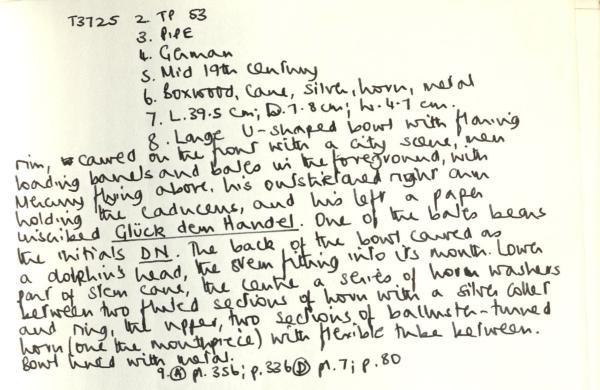 T3725 2. TP 53
3. PIPE
4. German
5. Mid 19th century
6. Boxwood, cane, silver, horn, metal
7. L.39.5 cm; D.7.8cm; W.4.7 cm.
8. Large U-shaped bowl with flaring
rim, carved on the front with a city scene, men
loading barrels and bales in the foreground, with
Mercury flying above, his outstretched right arm
holding the caduceus, and his left a paper
inscribed Glück dem Handel. One of the bales bears
the initials DN. The back of the bowl carved as
a dolphin's head, the stem fitting into its mouth. Lower
part of stem cane, the centre a series of horn washers
between two fluted sections of horn with a silver collar
and ring, the upper, two sections of balluster-turned
horn (one the mouthpiece) with flexible tube between.
Bowl lined with metal.
9. A pl.356; p.336 D pl.7; p.80